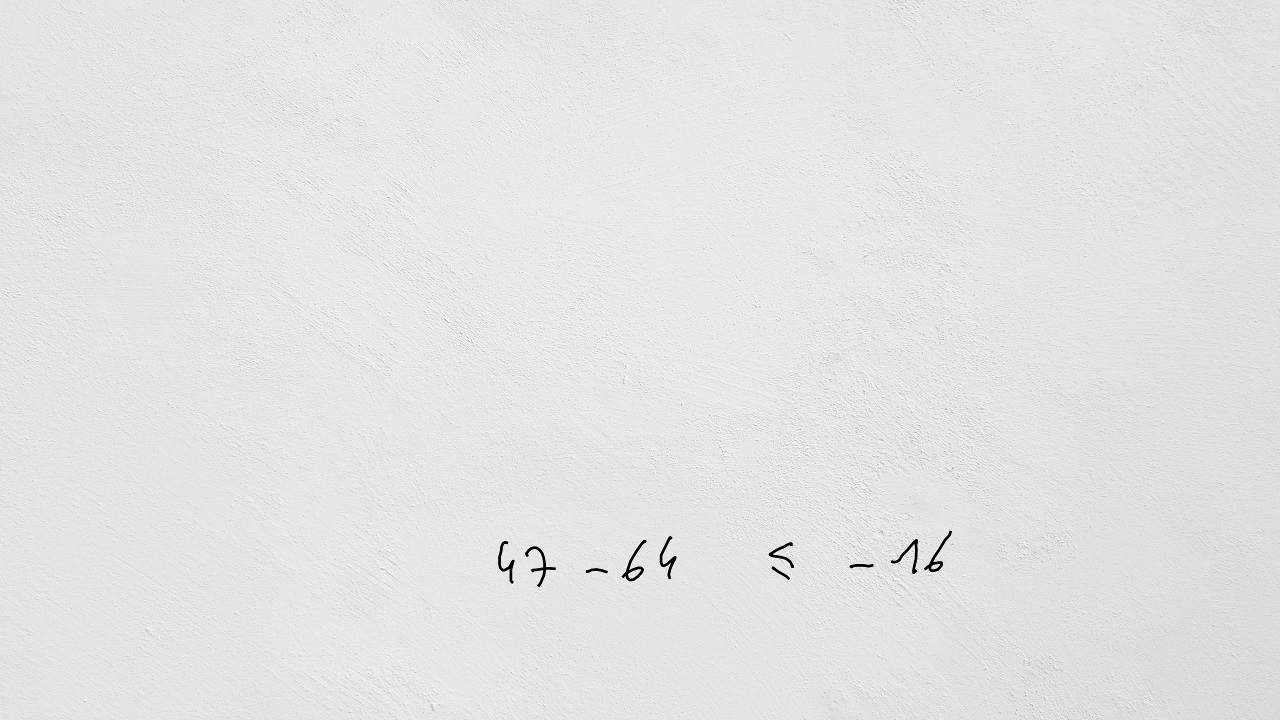 47 - 64 ≤ - 16